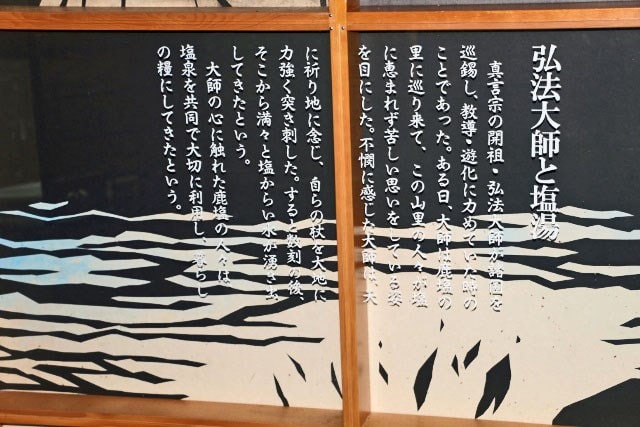 弘法大師と塩湯
真言宗の開祖・弘法大師が諸国を
巡錫し、教導・遊化に力めていた時の
ことであった。ある日、大師は鹿塩の
里に巡り来て、この山里の人々が塩
に恵まれず苦しい思いをしている姿
を目にした。不憫に感じた大師は、天
に祈り地に念じ、自らの杖を大地に
力強く突き刺した。すると数刻の後、
そこから満々と塩からい水が湧き出
してきたという。
大師の心に触れた鹿塩の人々は
塩泉を共同で大切に利用し、暮らし
の糧にしてきたという。